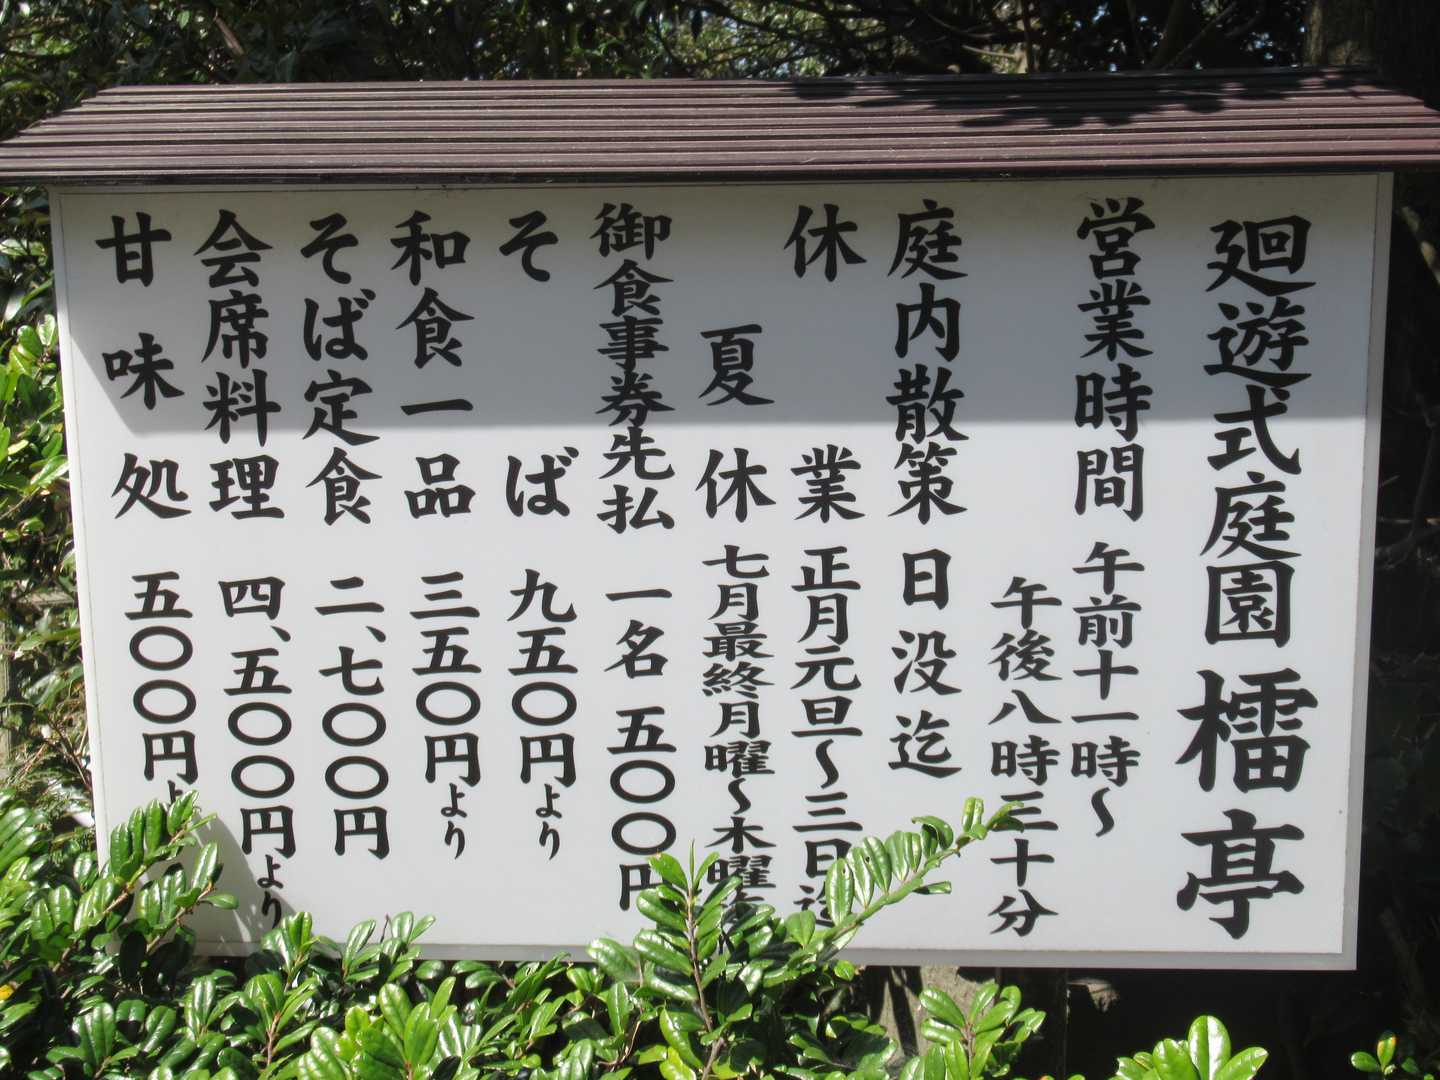 廻遊式庭園 檑亭
営業時間 午前十一時〜
午後八時三十分
庭内散策 日没迄
休業 正月元旦〜三日迄
夏休 七月最終月曜〜木曜
御食事券先払 一名 五〇〇円
そば 九五〇円より
和食一品 三五〇円より
そば定食 二、七〇〇円
会席料理 四、五〇〇円より
甘味処 五〇〇円